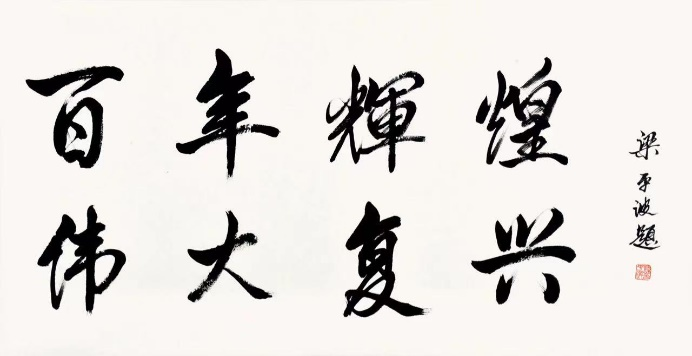 百年輝煌
伟大复兴
梁平波题